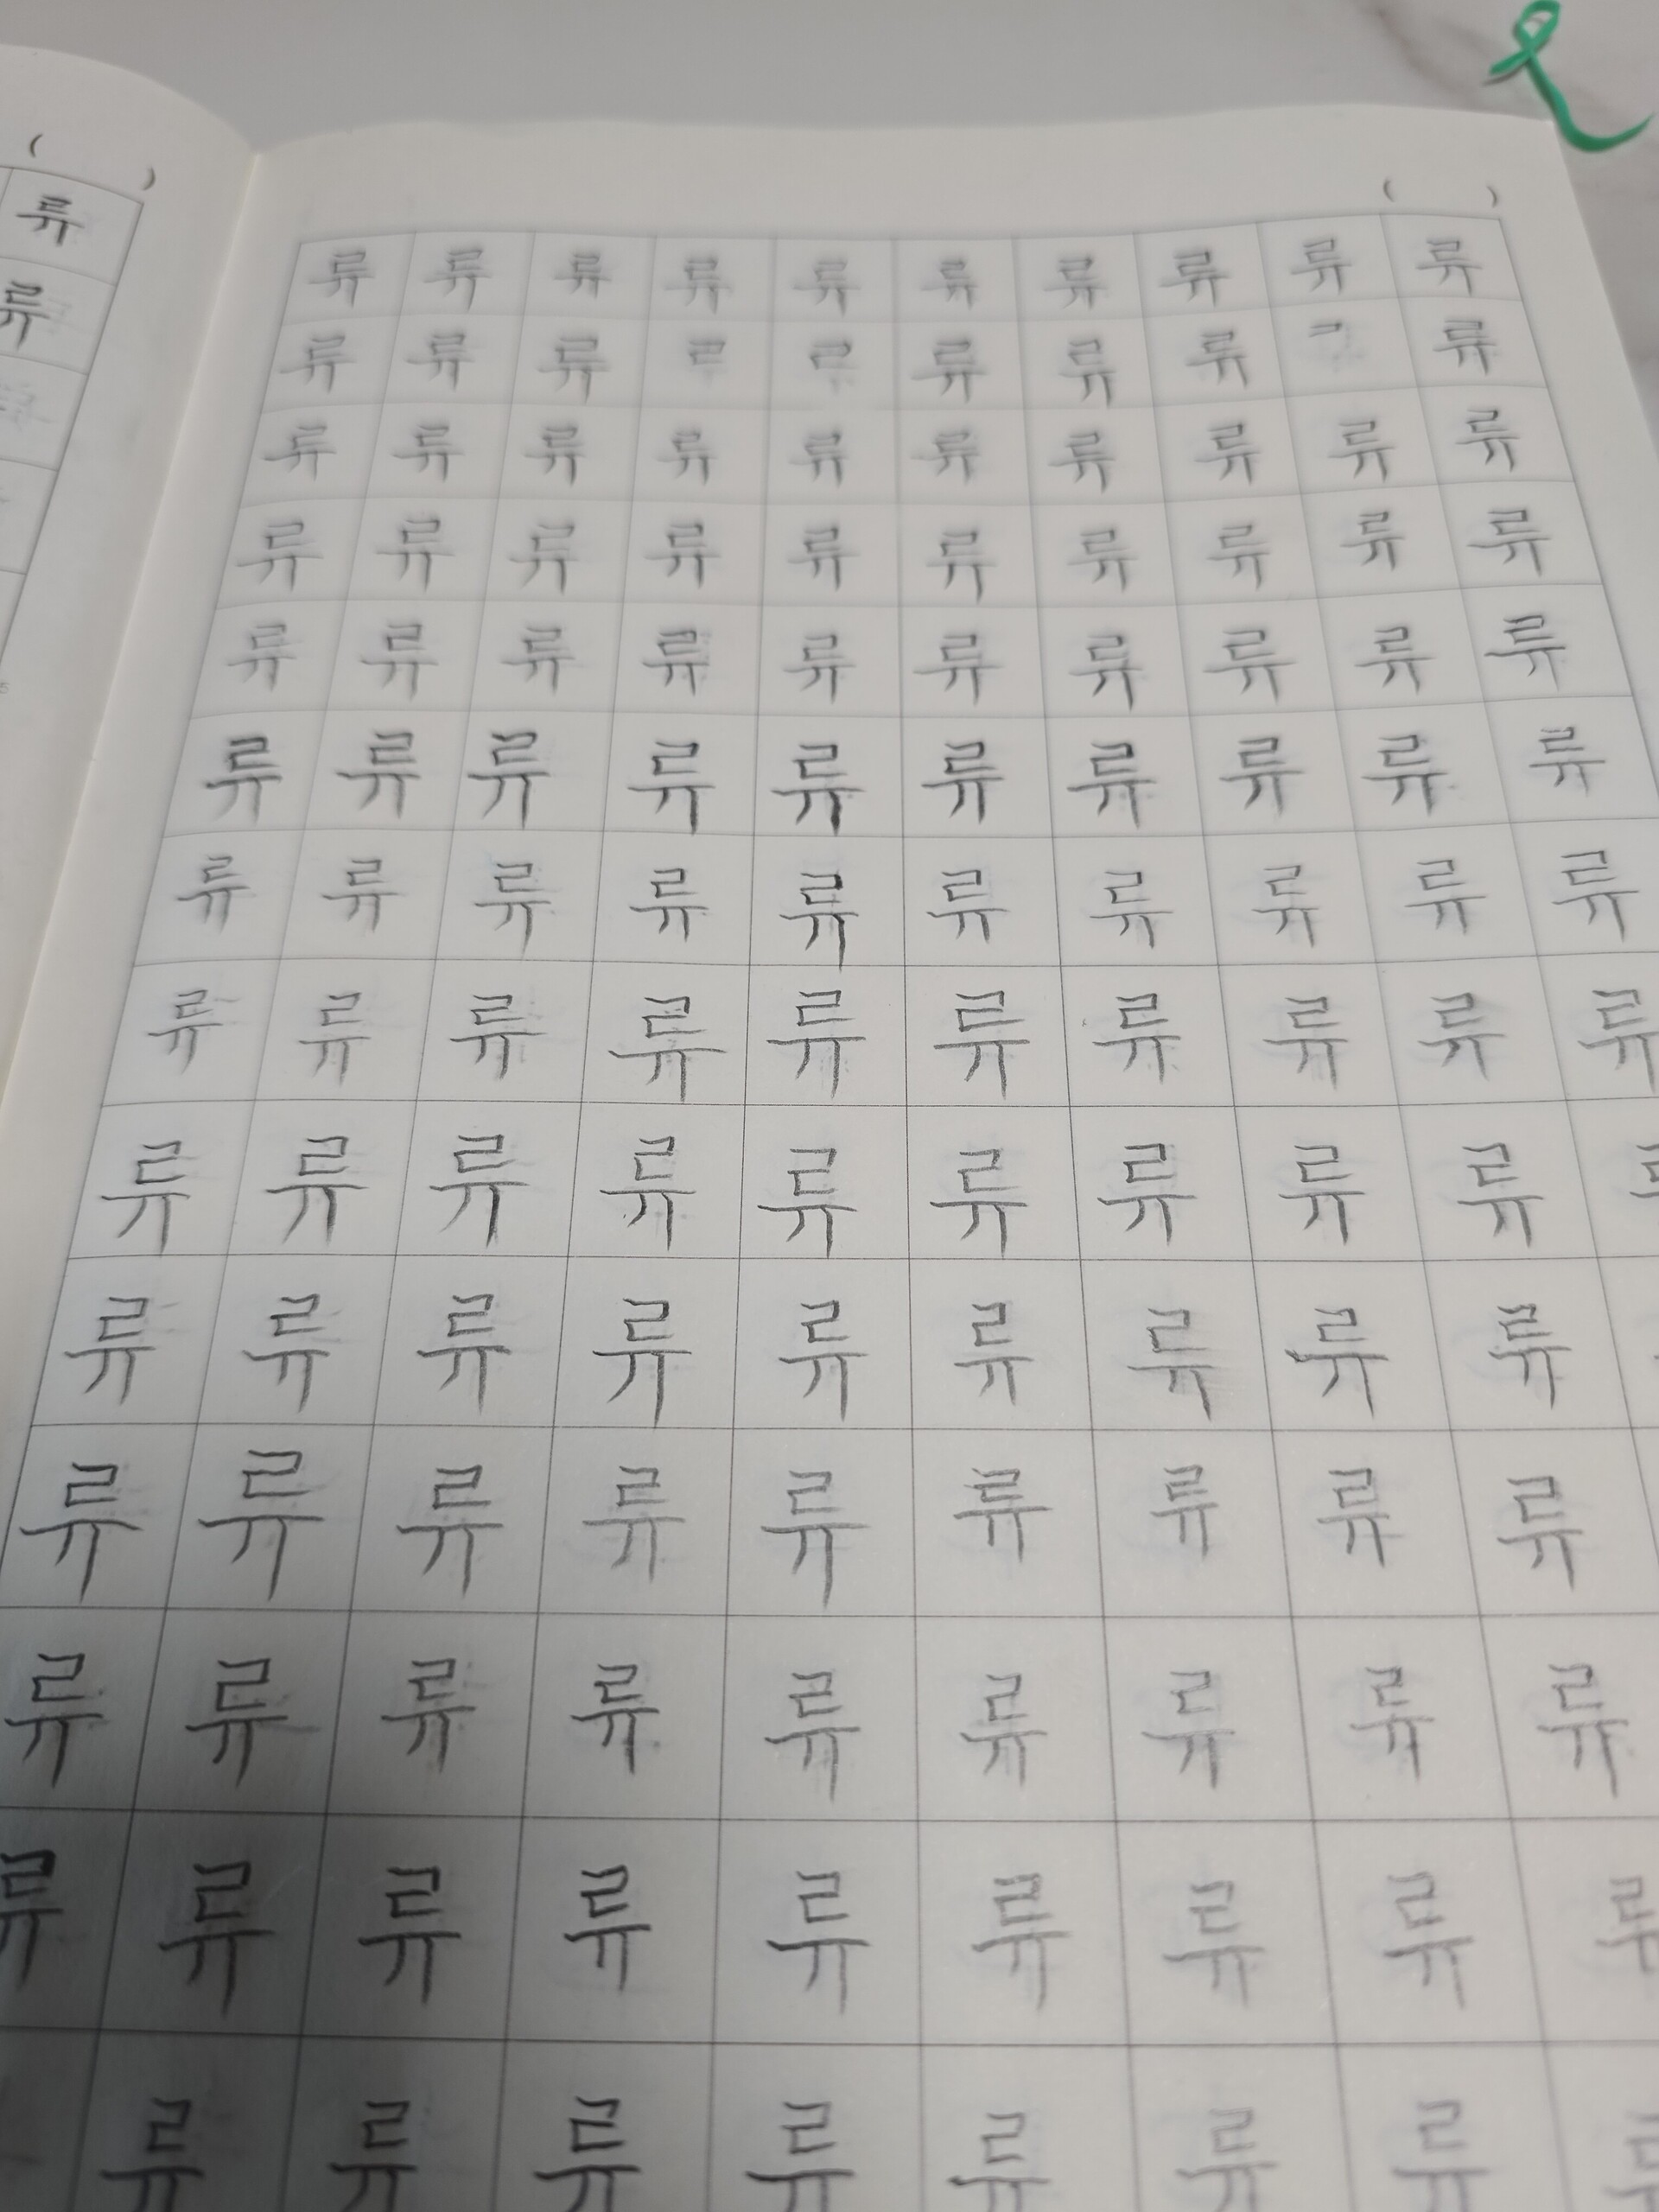 류
류
( )
( )
류 류 류 류 류 류 류 류 류 류
류 류 류 ㄹ ㄹ 류 류 류 ㄱ 류
류 류 류 류 류 류 류 류 류 류
류 류 류 류 류 류 류 류 류 류
류 류 류 류 류 류 류 류 류 류
류 류 류 류 류 류 류 류 류 류
류 류 류 류 류 류 류 류 류 류
류 류 류 류 류 류 류 류 류 류
류 류 류 류 류 류 류 류 류
류 류 류 류 류 류 류 류 류
류 류 류 류 류 류 류 류 류
류 류 류 류 류 류 류 류 류
류 류 류 류 류 류 류 류 류
류 류 류 류 류 류 류